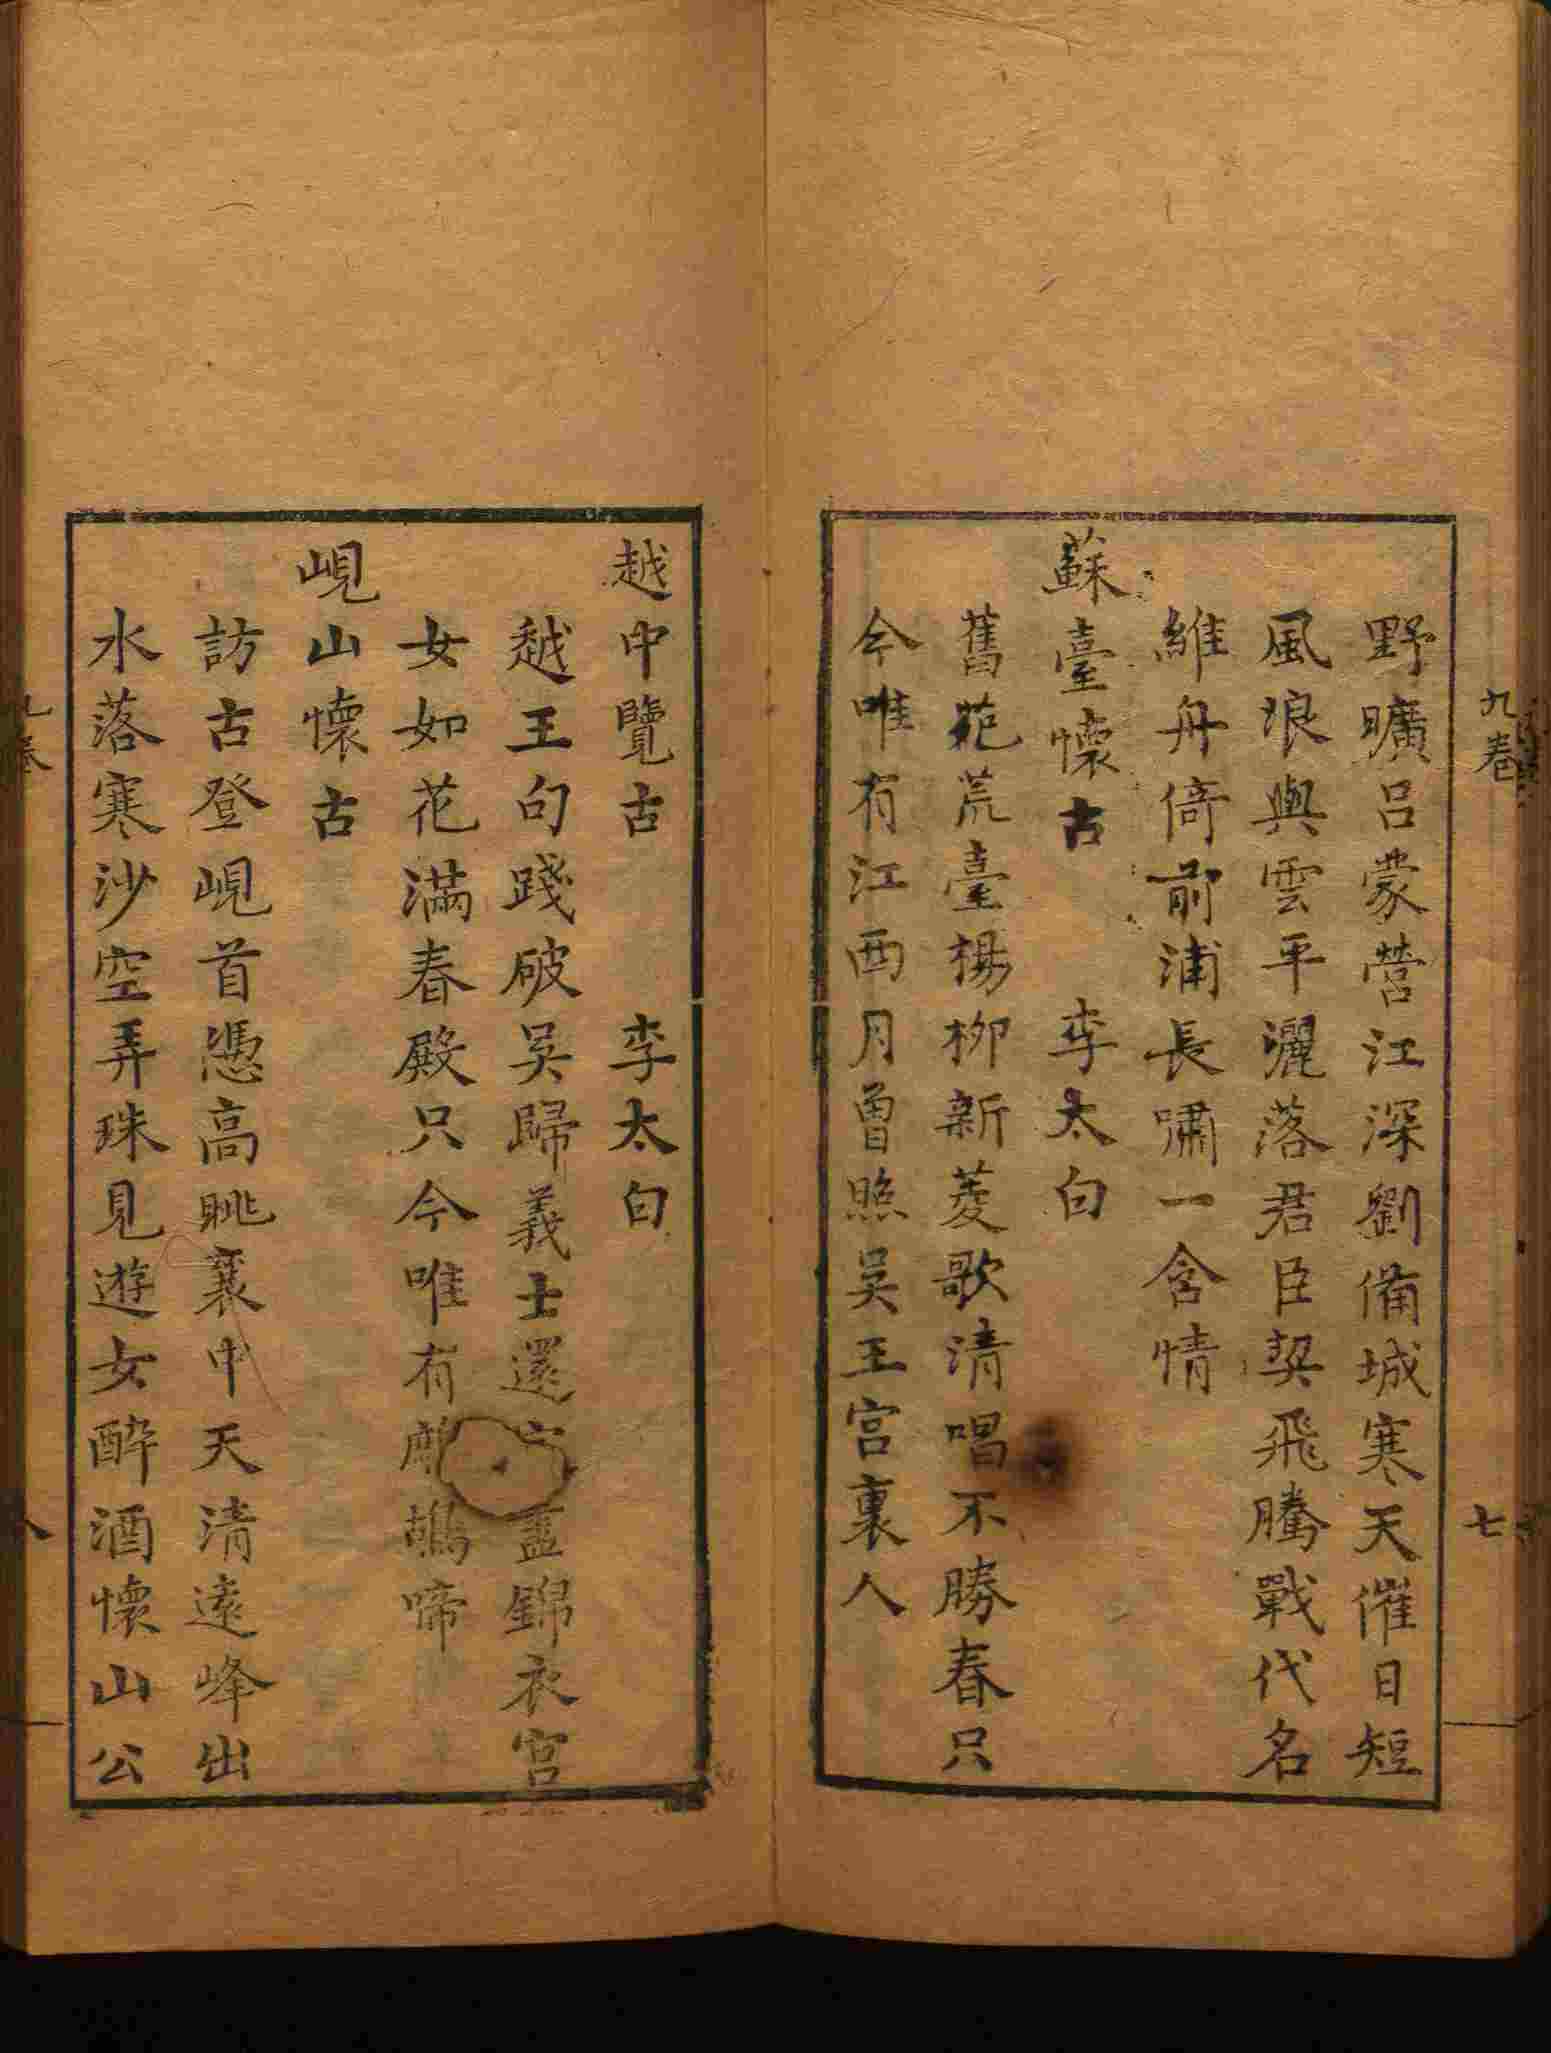 九卷
七
野曠吕蒙營江深劉備城寒天催日短
風浪與雲平灑落君臣契飛騰戰代名
維舟倚前浦長嘯一含情
蘇臺懷古 李太白
舊苑荒臺楊柳新菱歌清唱不勝春只
今唯有江西月曾照吳王宫裏人
越中覽古 李太白
越王句踐破吳歸義士還 盡錦衣宫
女如花滿春殿只今唯有鷓鴣啼
峴山懷古
訪古登峴首憑高眺襄中天清遠峰出
水落寒沙空弄珠見遊女醉酒懷山公
九卷
八